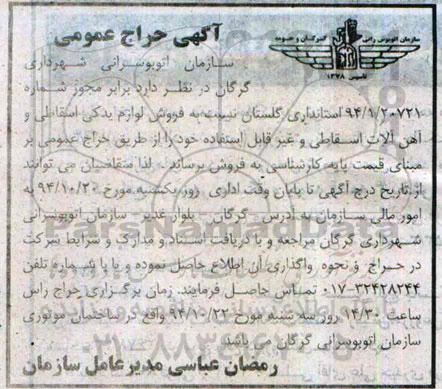 آگهی حراج عمومی
سازمان اتوبوس رانی گرگان و حومه
تاسیس ۱۳۷۸
سازمان اتوبوسرانی شهرداری
گرگان در نظر دارد برابر مجوز شماره
۹۴/۱/۲۰۷۲۱ استانداری گلستان نسبت به فروش لوازم یدکی اسقاطی و
آهن آلات اسقاطی و غیر قابل استفاده خود را از طریق حراج عمومی بر
مبنای قیمت پایه کارشناسی به فروش برساند. لذا متقاضیان می توانند
از تاریخ درج آگهی تا پایان وقت اداری روز یکشنبه مورخ ۹۴/۱۰/۲۰ به
امور مالی سازمان به آدرس گرگان بلوار غدیر سازمان اتوبوسرانی
شهرداری گرگان مراجعه و با دریافت اسناد و مدارک و شرایط شرکت
در حراج و نحوه واگذاری آن اطلاع حاصل نموده و یا با شماره تلفن
۰۱۷-۳۲۴۲۸۲۴۴ تماس حاصل فرمایند. زمان برگزاری حراج راس
ساعت ۱۴/۳۰ روز سه شنبه مورخ ۹۴/۱۰/۲۲ واقع در ساختمان موتوری
سازمان اتوبوسرانی گرگان می باشد.
رمضان عباسی مدیرعامل سازمان
ParsNamadData